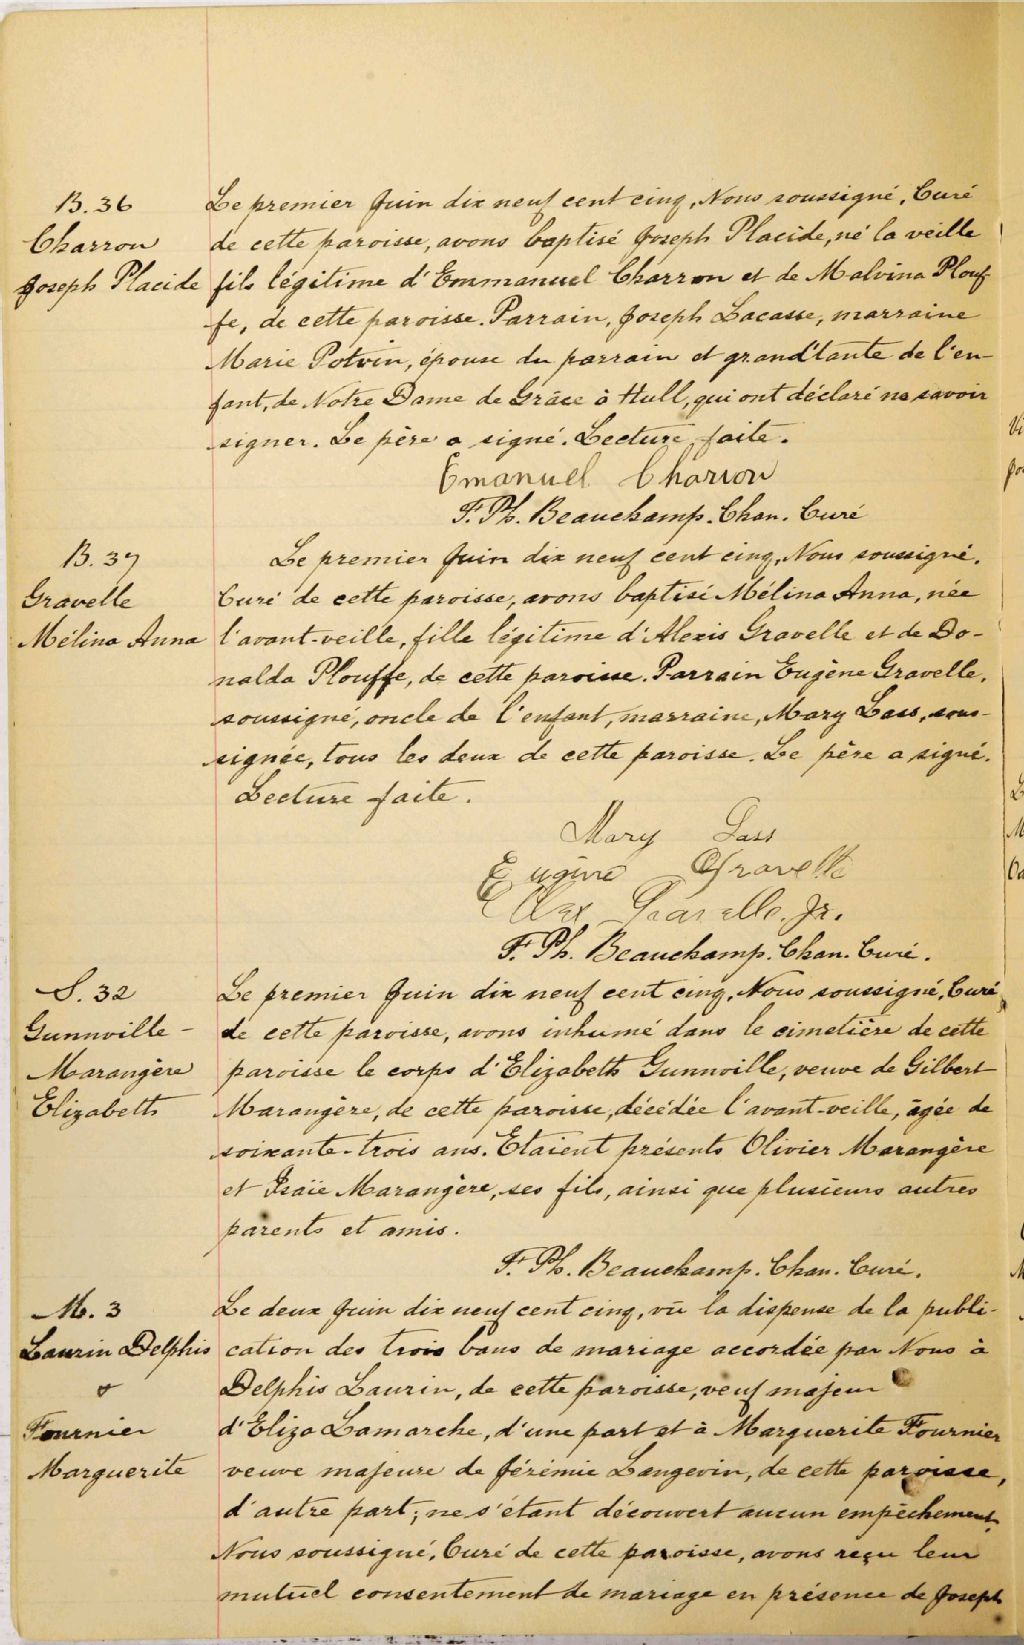 B. 36
Charron
Joseph Placide
Le premier Juin dix neuf cent cinq, Nous soussigné, Curé
de cette paroisse, avons baptisé Joseph Placide, né la veille
fils légitime d'Emmanuel Charron et de Malvina Plouf
fe, de cette paroisse. Parrain, Joseph Lacasse, marraine
Marie Potvin, épouse du parrain et grand'tante de l'en-
fant, de Notre Dame de Grâce à Hull, qui ont déclaré ne savoir
signer. Le père a signé. Lecture faite.
Emanuel Charron
F. Ph. Beauchamp. Chan. Curé
B. 37
Gravelle
Mélina Anna
Le premier Juin dix neuf cent cinq, Nous soussigné,
Curé de cette paroisse, avons baptisé Mélina Anna, née
l'avant-veille, fille légitime d'Alexis Gravelle et de Do-
nalda Plouffe, de cette paroisse. Parrain Eugène Gravelle,
soussigné, oncle de l'enfant, marraine, Mary Lass, sous-
signée, tous les deux de cette paroisse. Le père a signé.
Lecture faite.
Mary Lass
Eugène Gravelle
Alex Gravelle. Jr.
F. Ph. Beauchamp. Chan. Curé.
S. 32
Gunnville -
Marangère
Elizabeth
Le premier Juin dix neuf cent cinq, Nous soussigné, Curé
de cette paroisse, avons inhumé dans le cimetière de cette
paroisse le corps d'Elizabeth Gunnville, veuve de Gilbert
Marangère, de cette paroisse, décédée l'avant-veille, âgée de
soixante-trois ans. Etaient présents Olivier Marangère
et Isaïe Marangère, ses fils, ainsi que plusieurs autres
parents et amis.
F. Ph. Beauchamp. Chan. Curé.
M. 3
Laurin Delphis
&
Fournier
Marguerite
Le deux Juin dix neuf cent cinq, vu la dispense de la publi-
cation des trois bans de mariage accordée par Nous à
Delphis Laurin, de cette paroisse, veuf majeur
d'Eliza Lamarche, d'une part et à Marguerite Fournier
veuve majeure de Jérémie Langevin, de cette paroisse,
d'autre part; ne s'étant découvert aucun empêchement,
Nous soussigné, Curé de cette paroisse, avons reçu leur
mutuel consentement de mariage en présence de Joseph